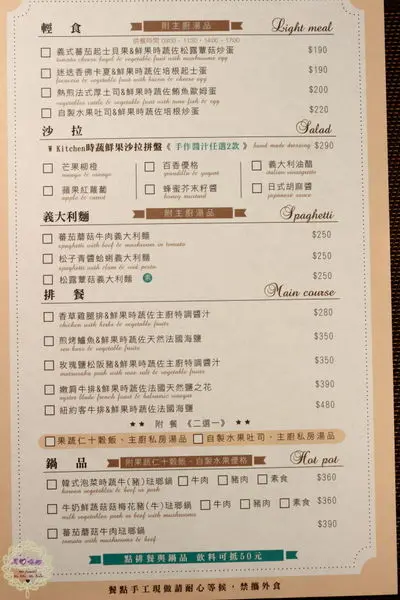 輕 食
附主廚湯品
Light meal
供餐時間 0900 - 11:30、14:00 - 17:00
義式蕃茄起士貝果&鮮果時蔬佐松露蕈菇炒蛋 $190
tomato cheese bagel & vegetable fruit with mushrooms egg
迷迭香佛卡夏&鮮果時蔬佐培根起士蛋 $190
focaccia & vegetable fruit with bacon & cheese egg
熱煎法式厚土司&鮮果時蔬佐鮪魚歐姆蛋 $200
vegetables castle & vegetable fruit with tuna fish & egg
自製水果吐司&鮮果時蔬佐培根炒蛋 $220
沙 拉
Salad
W Kitchen時蔬鮮果沙拉拼盤《 手作醬汁任選2款 》 hand made dressing $290
芒果柳橙
mango & orange
百香優格
granadilla & yogurt
義大利油醋
italian vinaigrette
蘋果紅蘿蔔
apple & carrot
蜂蜜芥末籽醬
honey mustard
日式胡麻醬
japanese sauce
義大利麵
附主廚湯品
Spaghetti
蕃茄蘑菇牛肉義大利麵 $250
spaghetti with beef & mushroom in tomato
松子青醬蛤蜊義大利麵 $250
spaghetti with clam & nut pesto
松露蕈菇義大利麵 素 $250
排 餐
Main course
香草雞腿排&鮮果時蔬佐主廚特調醬汁 $280
chicken with herbs & vegetable fruits
煎烤鱸魚&鮮果時蔬佐天然法國海鹽 $350
sea bass & vegetable fruits
玫瑰鹽松阪豬&鮮果時蔬佐主廚特調醬汁 $350
matsusaka pork with rose salt & vegetable fruits
嫩肩牛排&鮮果時蔬佐法國天然鹽之花 $390
oyster blade french found & balsamic vinegar
紐約客牛排&鮮果時蔬佐法國海鹽 $480
★★ 附 餐 《二選一》 ★★
果蔬仁十穀飯、主廚私房湯品 自製水果吐司、主廚私房湯品
鍋 品
附果蔬仁十穀飯、自製水果優格
Hot pot
韓式泡菜時蔬牛(豬)琺瑯鍋 牛肉 豬肉 素食 $360
korean vegetables & beef or pork
牛奶鮮蔬菇菇梅花豬(牛)琺瑯鍋 牛肉 豬肉 素食 $360
milk vegetables pork or beef with mushrooms
蕃茄蘑菇牛肉琺瑯鍋 $390
tomato with mushrooms & beef
點排餐與鍋品 飲料可抵50元
餐點手工現做請耐心等候，禁攜外食